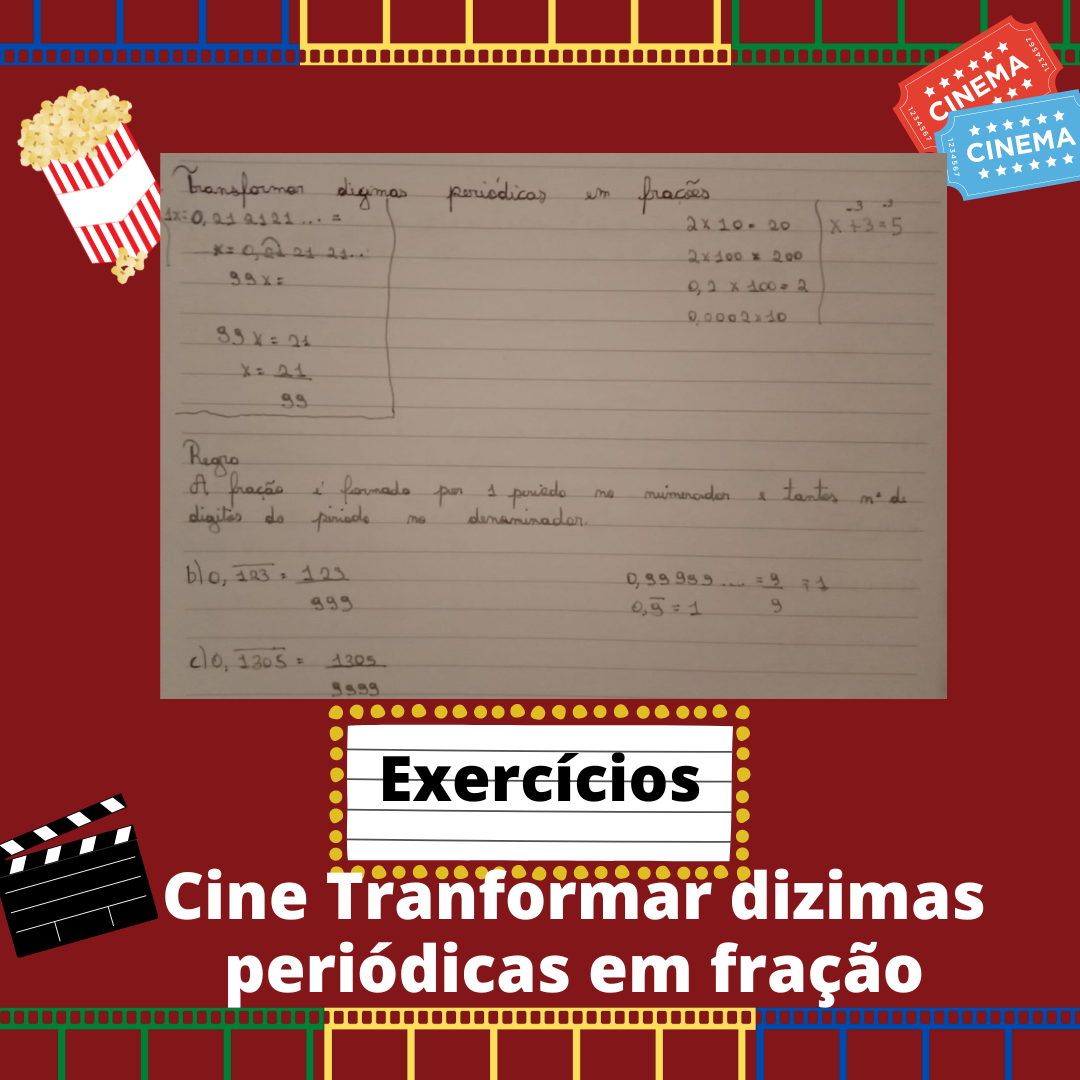 CINEMA
1234567
1234567
CINEMA
1234567
Transformar dizimas periódicas em frações
1x=0,21 2121... =
x= 0,21 21 21...
99x=
99x = 21
x= 21
99
2x10= 20
2x100 = 200
0,2 x 100= 2
0,0002x10
-3 -3
x+3=5
Regra
A fração é formada por 1 período no numerador e tantos nº de
digitos do período no denominador.
b) 0,123 = 123
999
0,99999.... = 9 = 1
9
0,9 = 1
c) 0,1305 = 1305
9999
Exercícios
Cine Tranformar dizimas
periódicas em fração